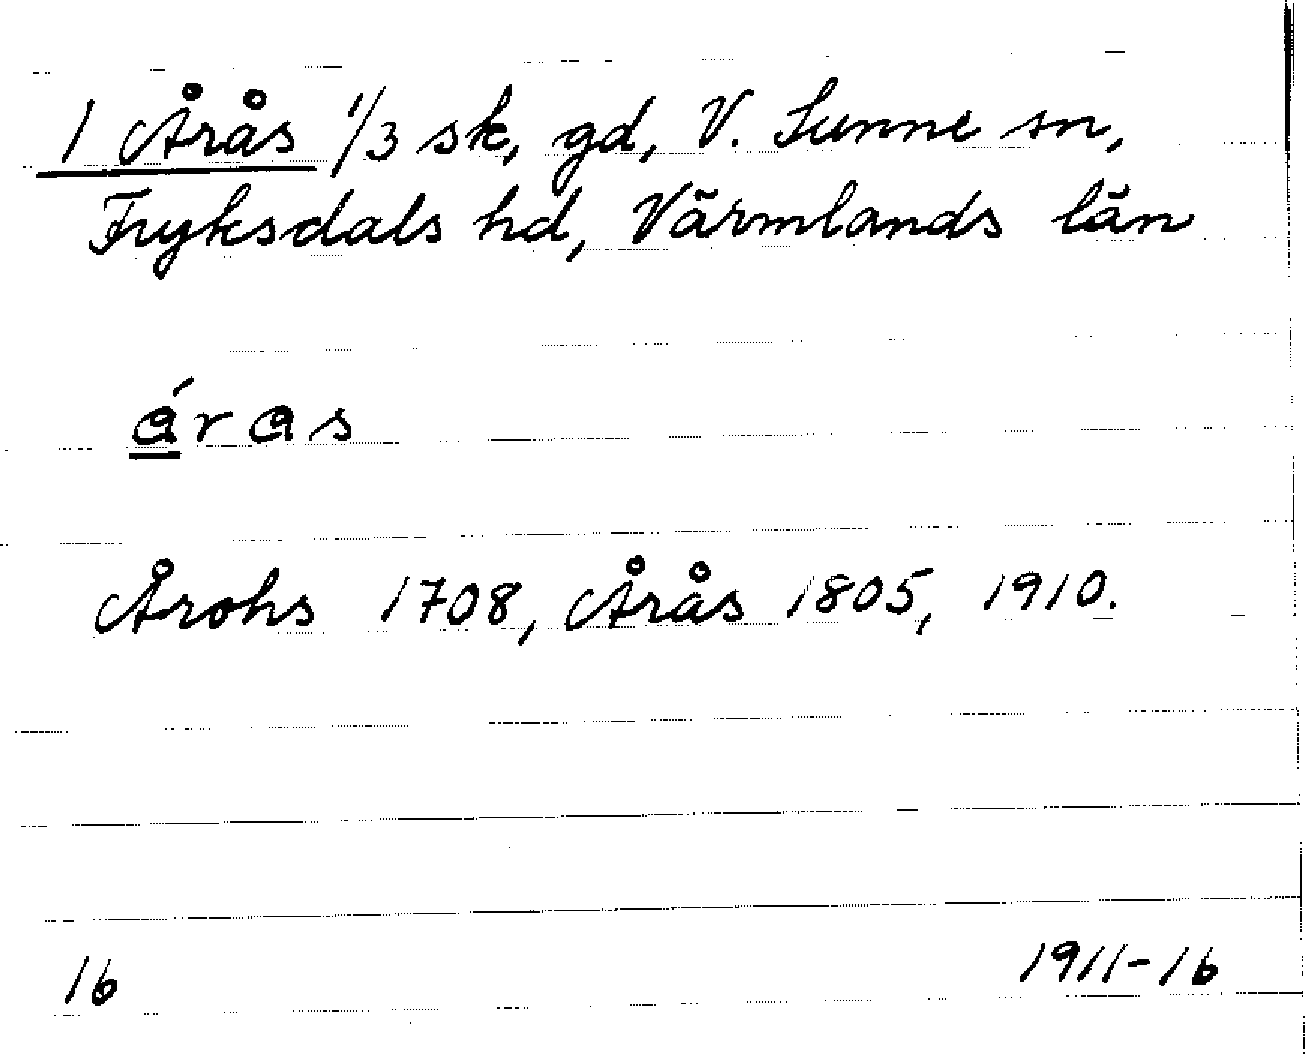 1 Årås 1/3 sk, gd, V. Sunne sn,
Fryksdals hd, Värmlands län
áras
Årohs 1708, Årås 1805, 1910.
16
1911-16